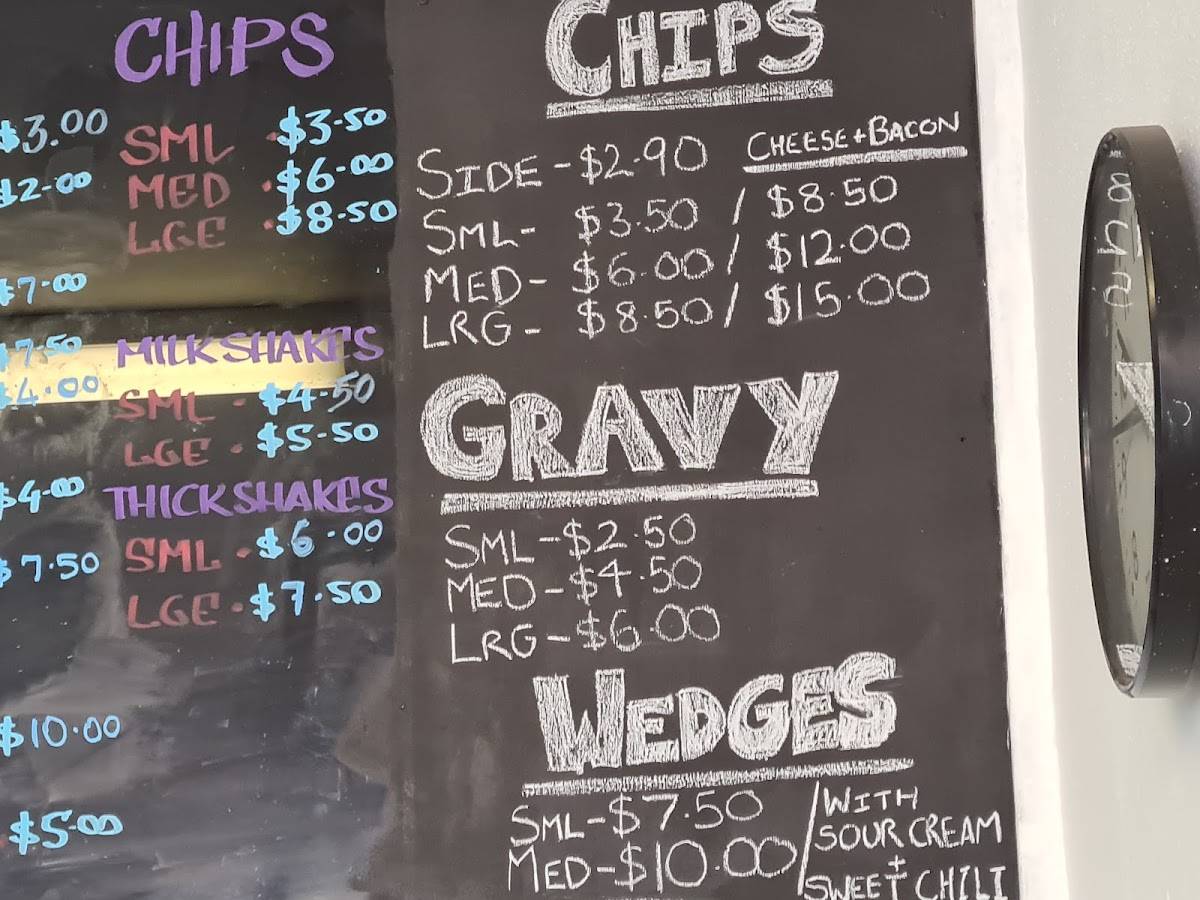 CHIPS
$3.00
SML .$3-50
$2-00
MED .$6-00
LGE .$8-50
$7-00
$7-50
MILKSHAKES
$4.00
SML - $4-50
LGE . $5-50
$4-00
THICKSHAKES
SML . $6-00
$7.50
LGE . $7.50
$10.00
$5-00
CHIPS
SIDE - $2-90 CHEESE + BACON
SML- $3.50 / $8.50
MED- $6.00 / $12.00
LRG- $8.50 / $15.00
GRAVY
SML - $2.50
MED - $4.50
LRG - $6.00
WEDGES
SML - $7.50 / WITH
SOUR CREAM
MED - $10.00 +
SWEET CHILI